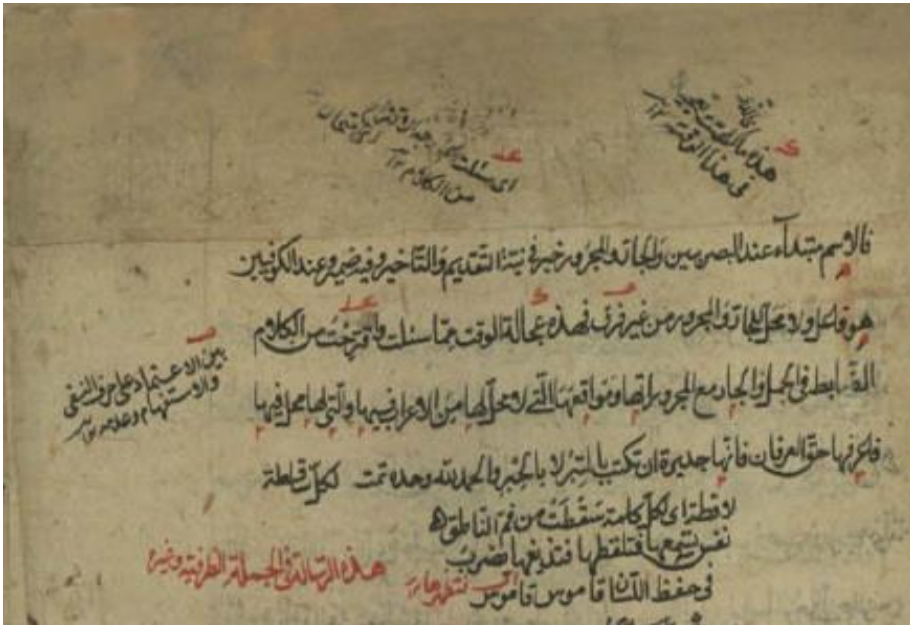 هذه ما
فى هذا الوقت ١٢
اى سئلت
من الكلام ١٢
فالاسم مبتدأ عند البصريين والجار والمجرور خبر فى نية التقديم والتاخير وفيه ضمير وعند الكوفيين
هو فاعل ولا محل للجار والمجرور من غير فرق فهذه عجالة الوقت مما سئلت واقترحت من الكلام
الضابط فى الجمل والجار مع المجرور اتها ومواقعها التى لا محل لها من الاعراب فيها والتى لها محل فيها
فاعرفها حق العرفان فانها جديرة ان تكتب بالتبر لا بالحبر والحمد لله وحده تمت
بين الاعتماد على حرف النفى
والاستفهام وعدمه ١٢
لكل ساقطة
لاقطة اى لكل كلمة سقطت من فم الناطق
نفس تسمعها فتلقطها فتذيعها يضرب
فى حفظ اللسان قاموس قاموس
هذه الرسالة فى الجملة الظرفية وغيره